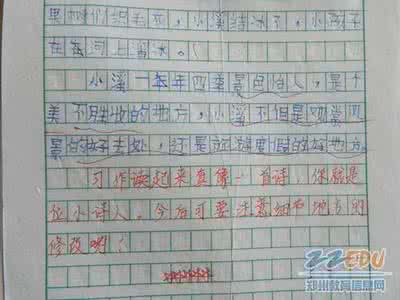 果树们织毛衣，小溪结冰了，小孩子
在河上溜冰。
小溪一年四季景色怡人，是个
美不胜收的地方，小溪不但是观赏风
景的好去处，还是旅游度假的好地方。
习作读起来真像一首诗，你就是
位小诗人。今后可要注意细节地方的
修改哟！
22EDU
郑州教育信息网